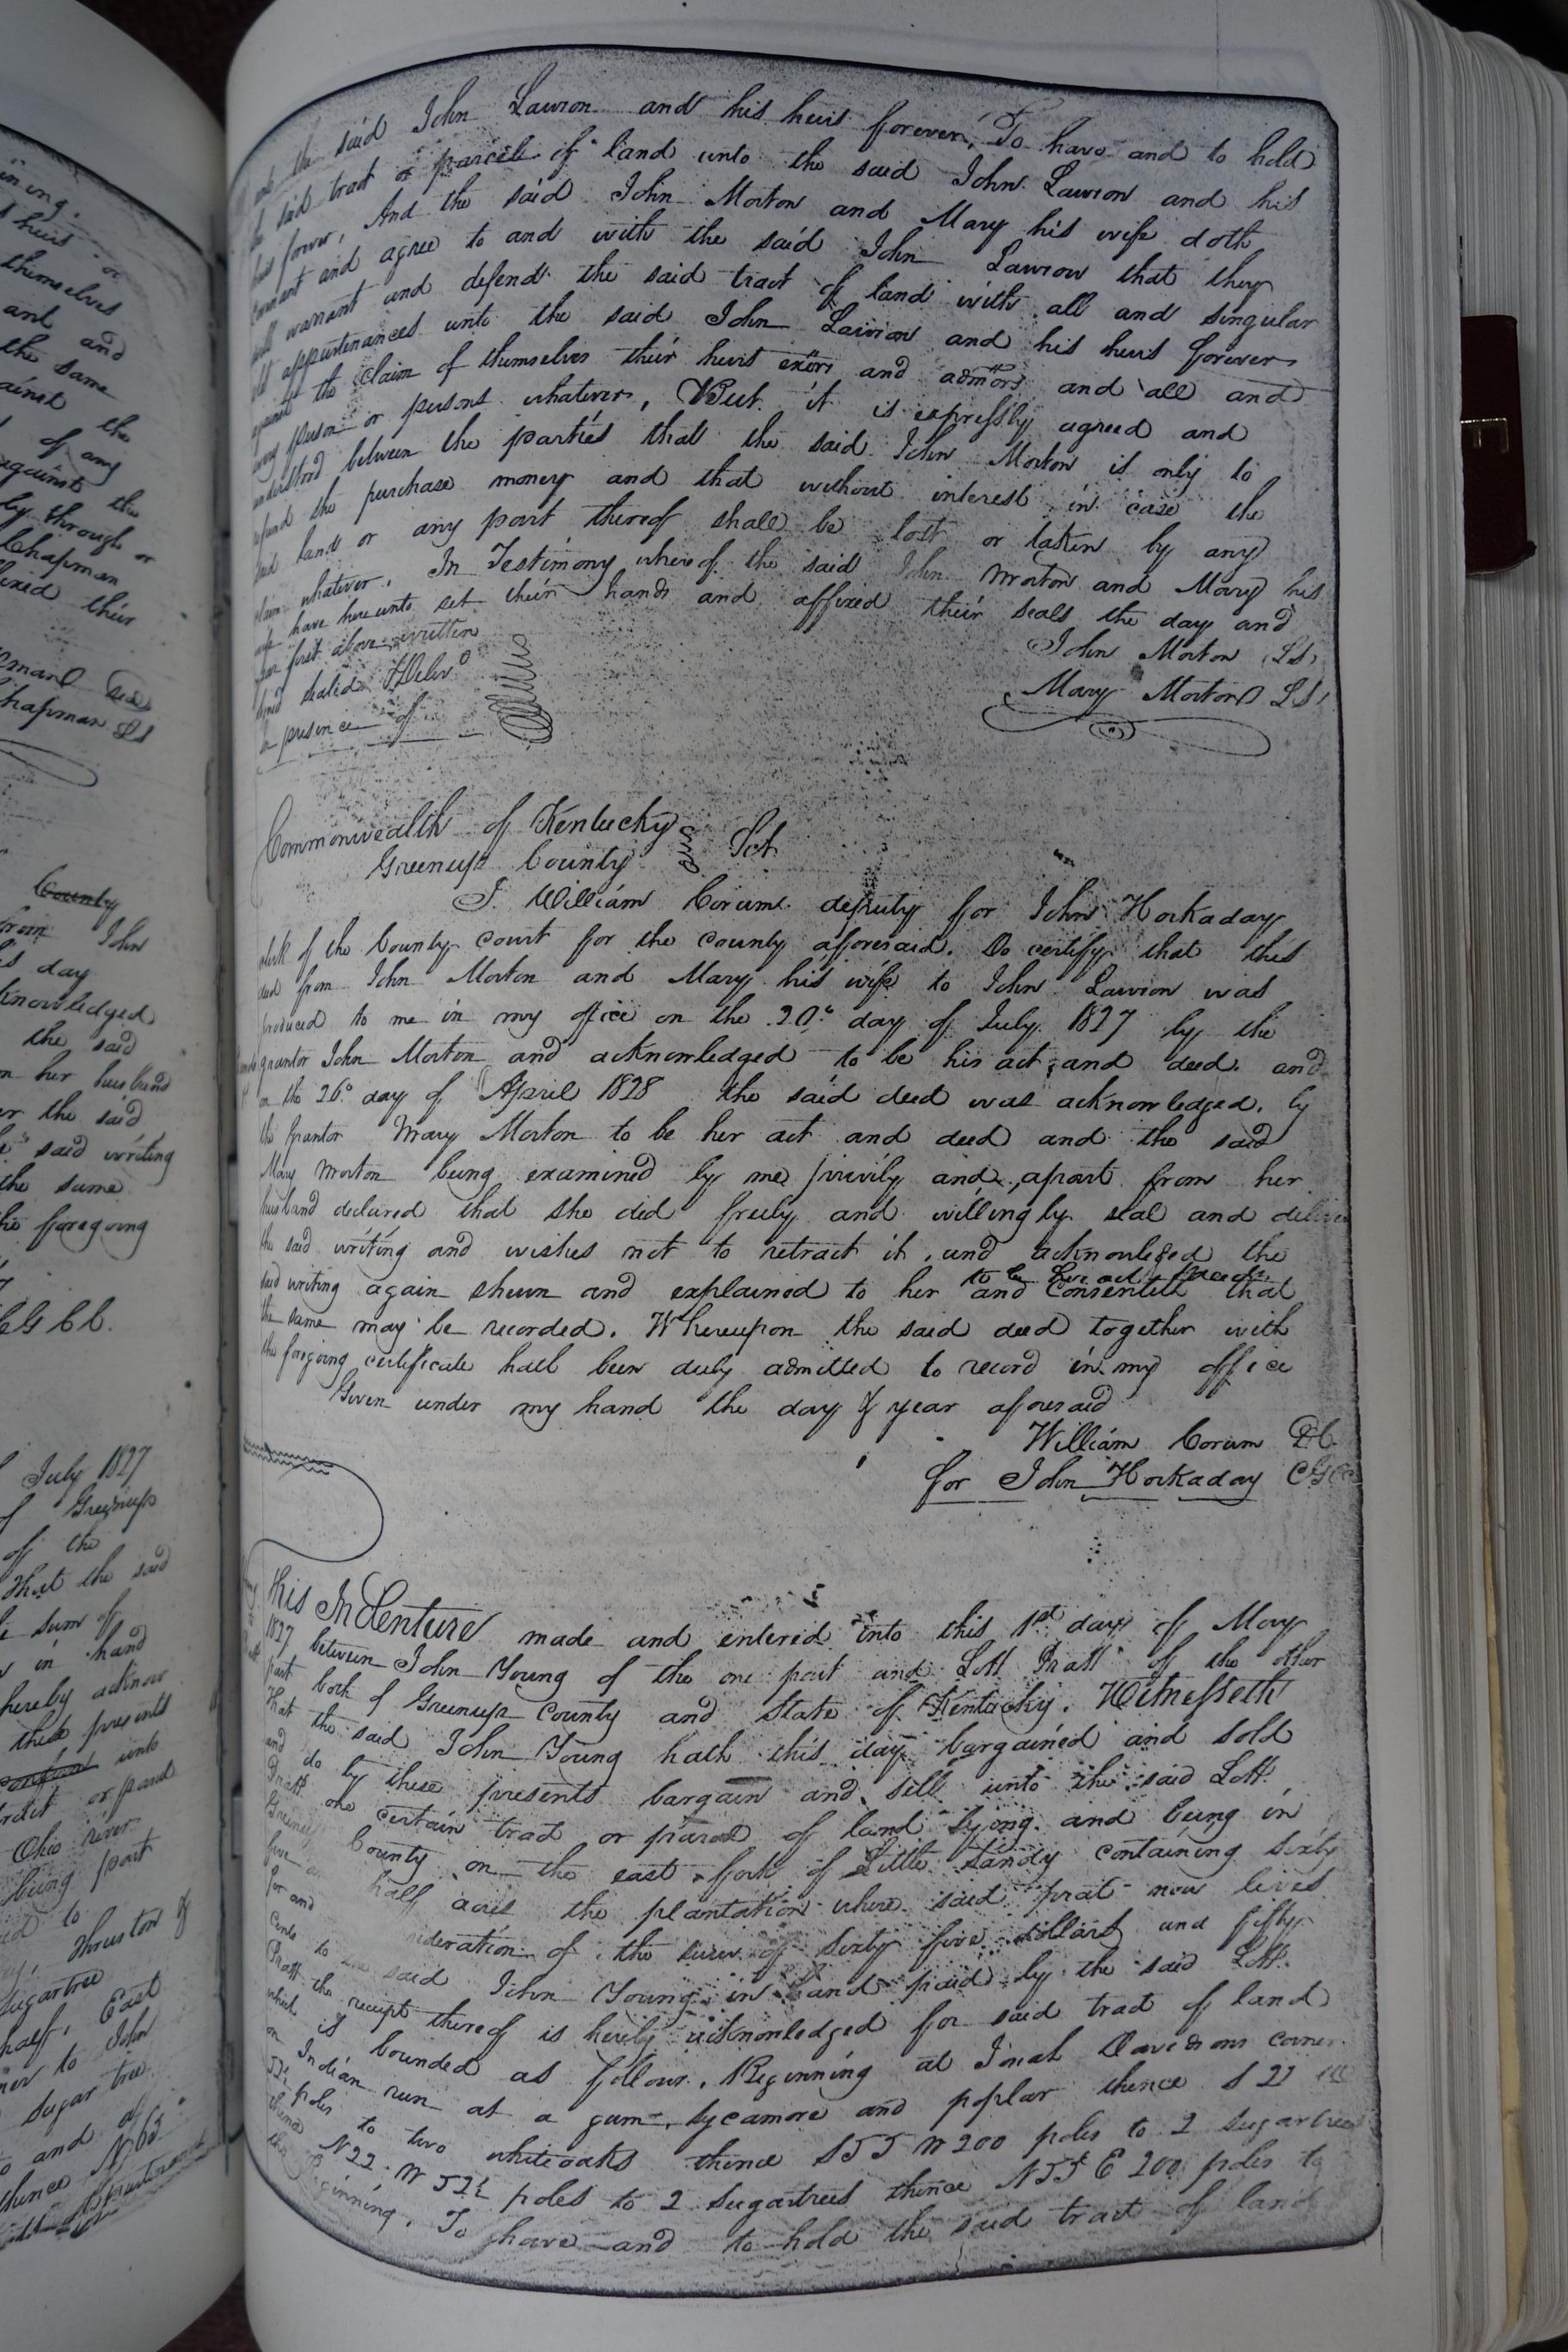 ining.
s heirs or
themselves
and and
the same
ainst the
of any
against the
by through or
Chapman
fixed their
Chapman LS
County
from John
is day
acknowledged
the said
on her husband
or the said
said writing
the same
the foregoing
July 1827
of Greenup
of the
That the said
sum of
in hand
hereby acknow
these presents
unto
or parcel
Ohio river
being part
to
Thruston &
Sugartree
half, East
to John
sugar tree
and of
thence N 63
the said John Lawson and his heirs forever, To have and to hold
the said tract or parcel of land unto the said John Lawson and his
heirs forever, And the said John Morton and Mary his wife doth
covenant and agree to and with the said John Lawson that they
will warrant and defend the said tract of land with all and singular
appurtenances unto the said John Lawson and his heirs forever
against the claim of themselves their heirs exors and admors and all and
every person or persons whatever, But it is expressly agreed and
understood between the parties that the said John Morton is only to
refund the purchase money and that without interest in case the
said land or any part thereof shall be lost or taken by any
claim whatever. In Testimony whereof the said John Morton and Mary his
wife have hereunto set their hands and affixed their seals the day and
year first above written
John Morton LS
Signed sealed & Delivd
Mary Morton LS
in presence of
Commonwealth of Kentucky
Greenup County Sct
I William Corum deputy for John Hockaday
clerk of the County court for the county afforesaid. Do certify that this
deed from John Morton and Mary his wife to John Lawson was
produced to me in my office on the 20th day of July 1827 by the
grantor John Morton and acknowledged to be his act and deed. and
on the 26th day of April 1828 the said deed was acknowledged by
the grantor Mary Morton to be her act and deed and the said
Mary Morton being examined by me privily and apart from her
husband declared that she did freely and willingly seal and deliver
the said writing and wishes not to retract it, and acknowleged the
to be her act & deed
said writing again shewn and explained to her and consented that
the same may be recorded. Whereupon the said deed together with
the foregoing certificate hath been duly admitted to record in my office
Given under my hand the day & year aforesaid
William Corum DC
for John Hockaday CGCC
This Indenture made and entered into this 1st day of May
1827 between John Young of the one part and Lott Pratt of the other
part both of Greenup County and State of Kentucky. Witnesseth
That the said John Young hath this day bargained and sold
and do by these presents bargain and sell unto the said Lott
Pratt one certain tract or parcel of land lying and being in
Greenup County on the east fork of Little Sandy containing sixty
five half acres the plantation where said prat now lives
for and consideration of the sum of sixty five dollars and fifty
Cents to said John Young in hand paid by the said Lott
Pratt the receipt thereof is hereby acknowledged for said tract of land
which is bounded as follows. Beginning at Josiah Davidsons corner
on Indian run at a gum, sycamore and poplar thence S 22
52½ poles to two whiteoaks thence S 55 W 200 poles to 2 sugartrees
thence N 22 W 52½ poles to 2 sugartrees thence N 55 E 200 poles to
the Beginning. To have and to hold the said tract of land